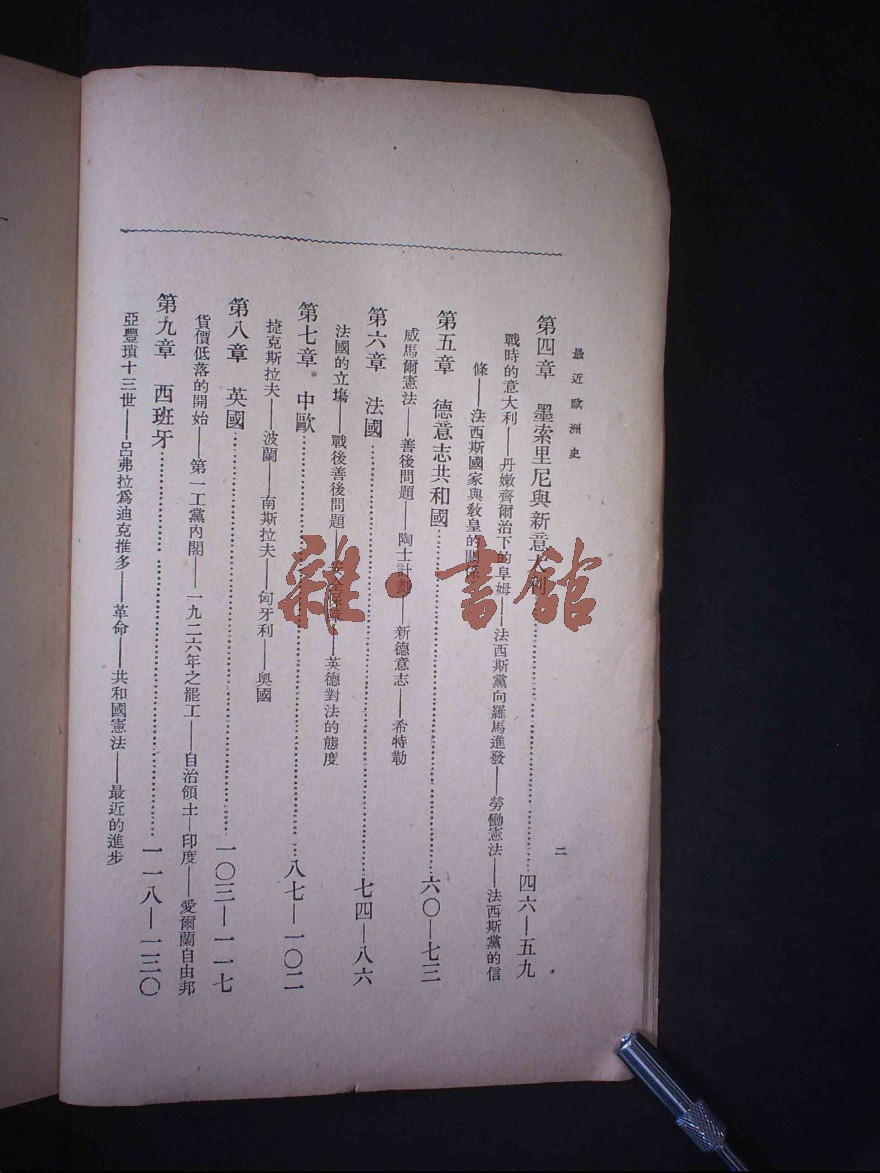 最近歐洲史
二
第四章 墨索里尼與新意大利……四六—五九
戰時的意大利——丹嫩齊爾治下的阜姆——法西斯黨向羅馬進發——勞働憲法——法西斯黨的信
條——法西斯國家與教皇的關係
第五章 德意志共和國……六〇—七三
威馬爾憲法——善後問題——陶士計劃——新德意志——希特勒
第六章 法國……七四—八六
法國的立塲——戰後善後問題——安全保障——英德對法的態度
第七章 中歐……八七—一〇二
捷克斯拉夫——波蘭——南斯拉夫——匈牙利——奧國
第八章 英國……一〇三—一一七
貨價低落的開始——第一工黨內閣——一九二六年之罷工——自治領土—印度——愛爾蘭自由邦
第九章 西班牙……一一八—一三〇
亞豐瑣十三世——呂弗拉爲迪克推多——革命——共和國憲法——最近的進步
雜·書館